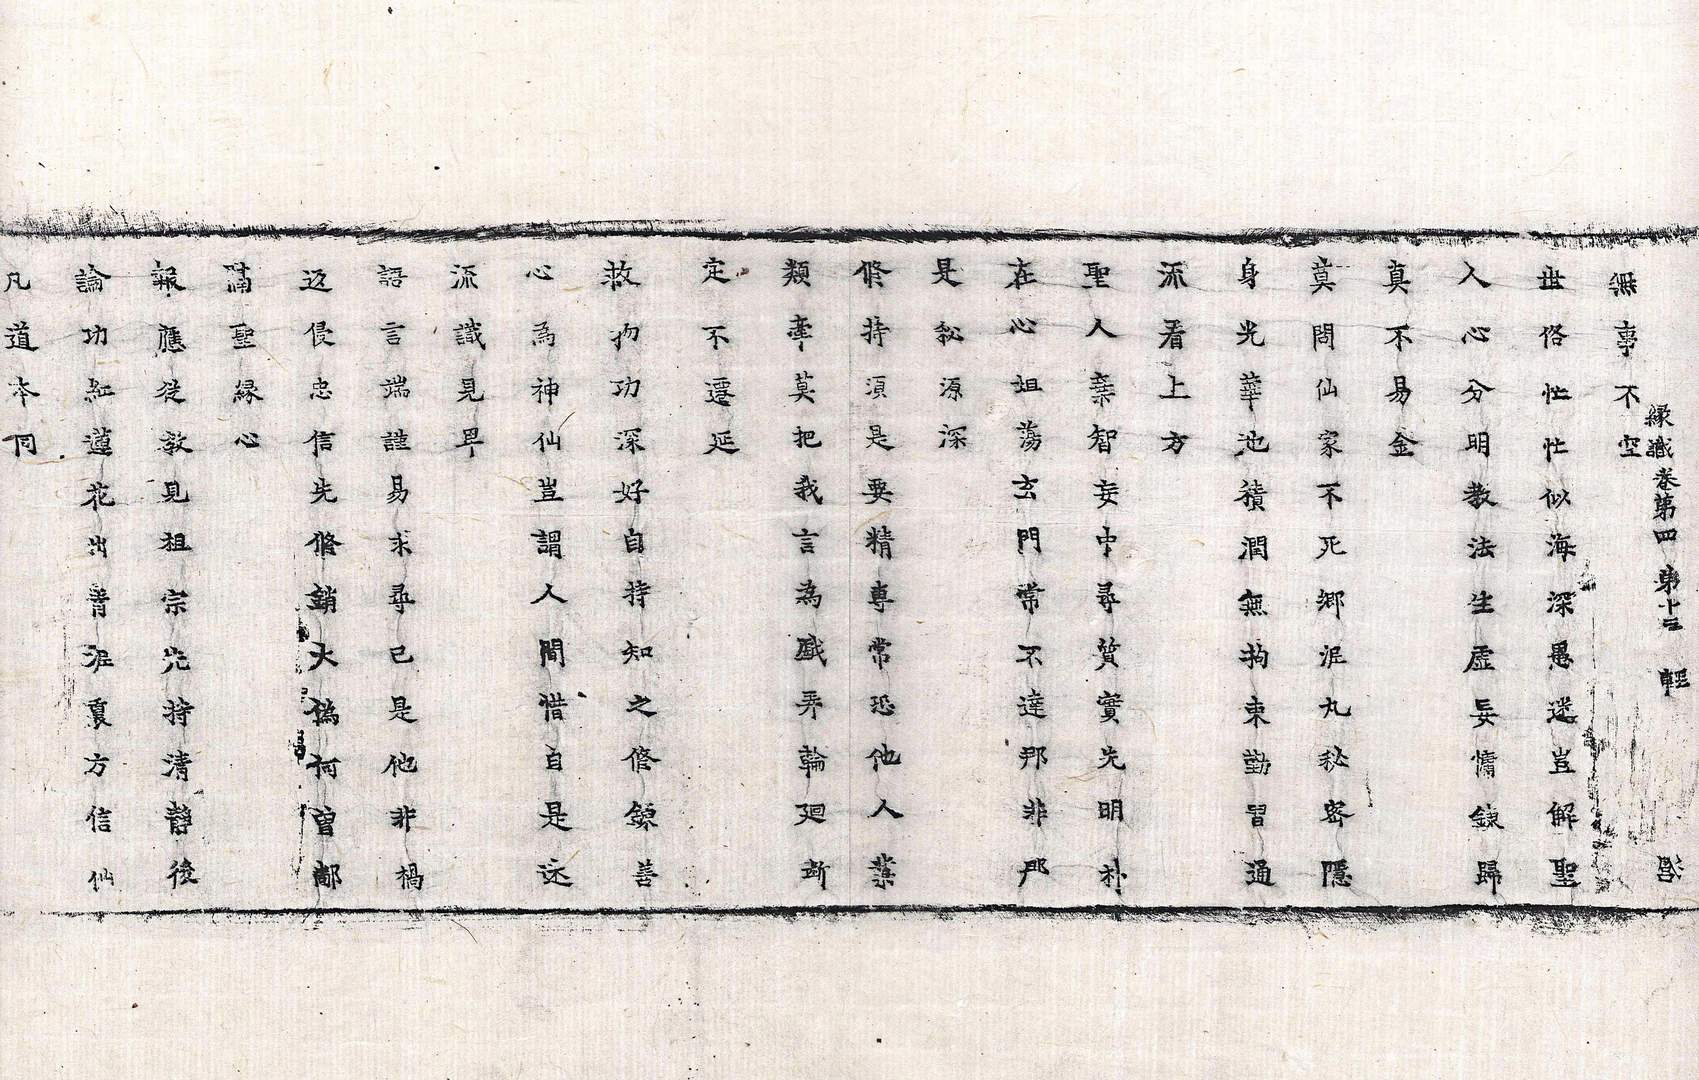 緣識卷第四 第十三 輕
無事不空
世俗忙忙似海深愚迷豈解聖
人心分明教法生虛妄慵鍊歸
真不易金
莫問仙家不死鄉泥丸秘密隱
身光華池積潤無拘束勤習通
流看上方
聖人棄智妄中尋質實先明朴
在心沮蕩玄門常不達那非那
是秘源深
脩持須是要精專常恐他人業
類牽莫把我言為戲弄輪迴斷
定不遷延
救物功深好自持知之脩鍊善
心為神仙豈謂人間惜自是迷
流識見卑
語言端謹易求尋己是他非禍
返侵忠信先脩銷大偽何曾鄙
滿聖緣心
報應從教見祖宗先持清靜後
論功紅蓮花出青泥夏方信仙
凡道本同